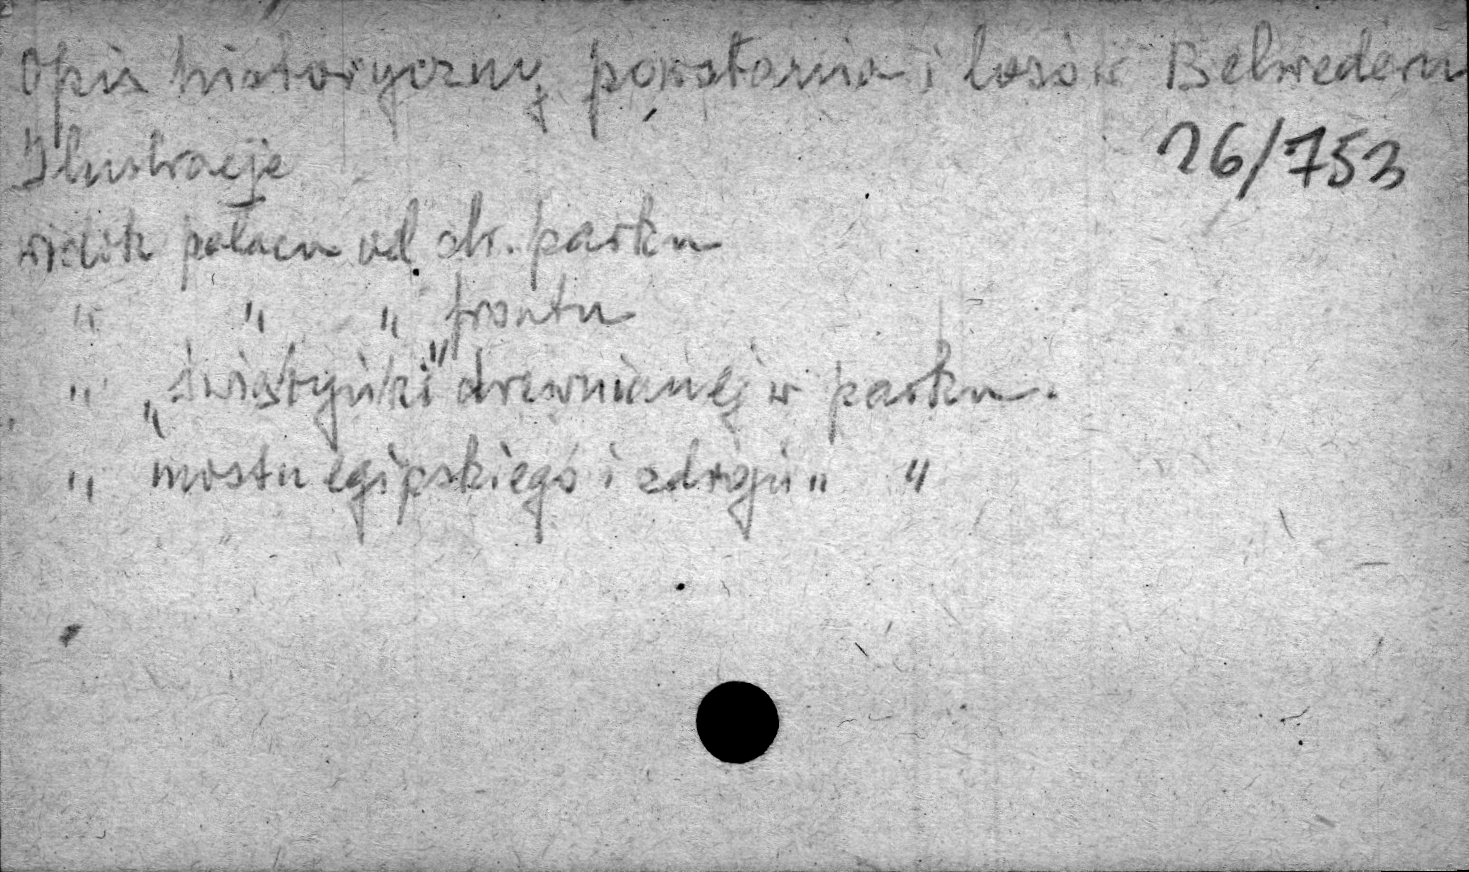 Opis historyczny powstania i losów Belwederu
26/753
Ilustracje
widok pałacu od str. parku
" " " frontu
" „świątyńki" drewnianej w parku.
" mostu egipskiego i zdroju " "